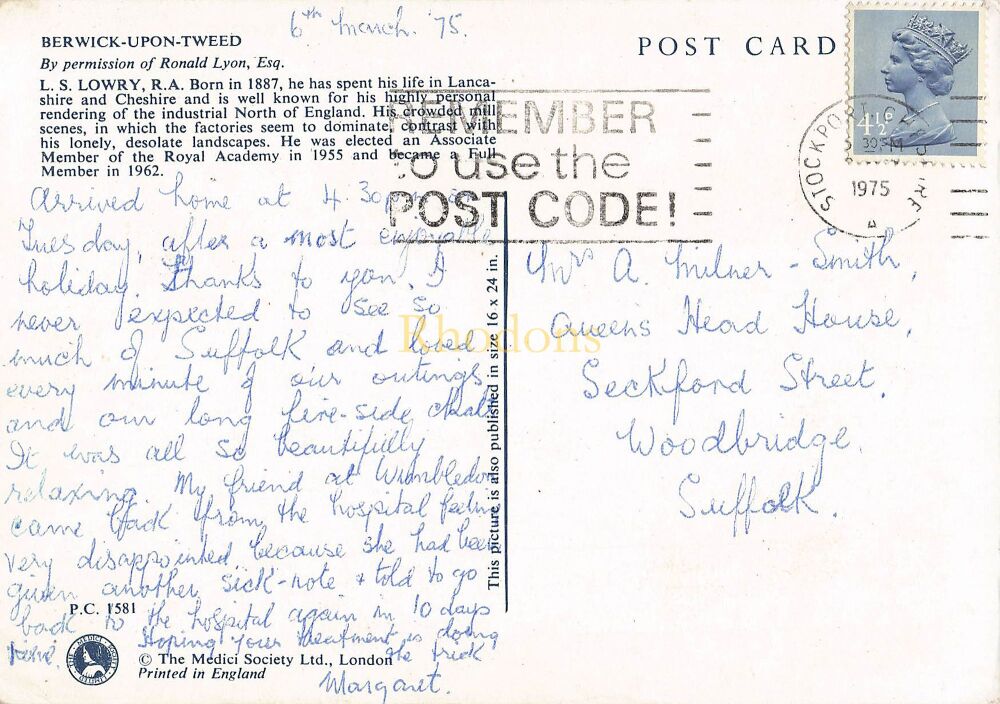 6th March. '75.
BERWICK-UPON-TWEED
By permission of Ronald Lyon, Esq.
L. S. LOWRY, R.A. Born in 1887, he has spent his life in Lanca-
shire and Cheshire and is well known for his highly personal
rendering of the industrial North of England. His crowded mill
scenes, in which the factories seem to dominate, contrast with
his lonely, desolate landscapes. He was elected an Associate
Member of the Royal Academy in 1955 and became a Full
Member in 1962.
POST CARD
REMEMBER
to use the
POST CODE!
4½P
STOCKPORT
1975
Arrived home at 4.30pm on
Tuesday, after a most enjoyable
holiday. Thanks to you. I
never expected to see so
much of Suffolk and loved
every minute of our outings
and our long fire-side chats
It was all so beautifully
relaxing. My friend at Wimbledon
came back from the hospital feeling
very disappointed because she had been
given another sick-note & told to go
back to the hospital again in 10 days
time. Hoping your treatment is doing
the trick
Margaret.
This picture is also published in size 16 x 24 in.
Mrs A. Milner - Smith,
Queens Head House,
Seckford Street,
Woodbridge,
Suffolk.
Rhodons
P.C. 1581
THE MEDICI SOCIETY LIMITED
© The Medici Society Ltd., London
Printed in England